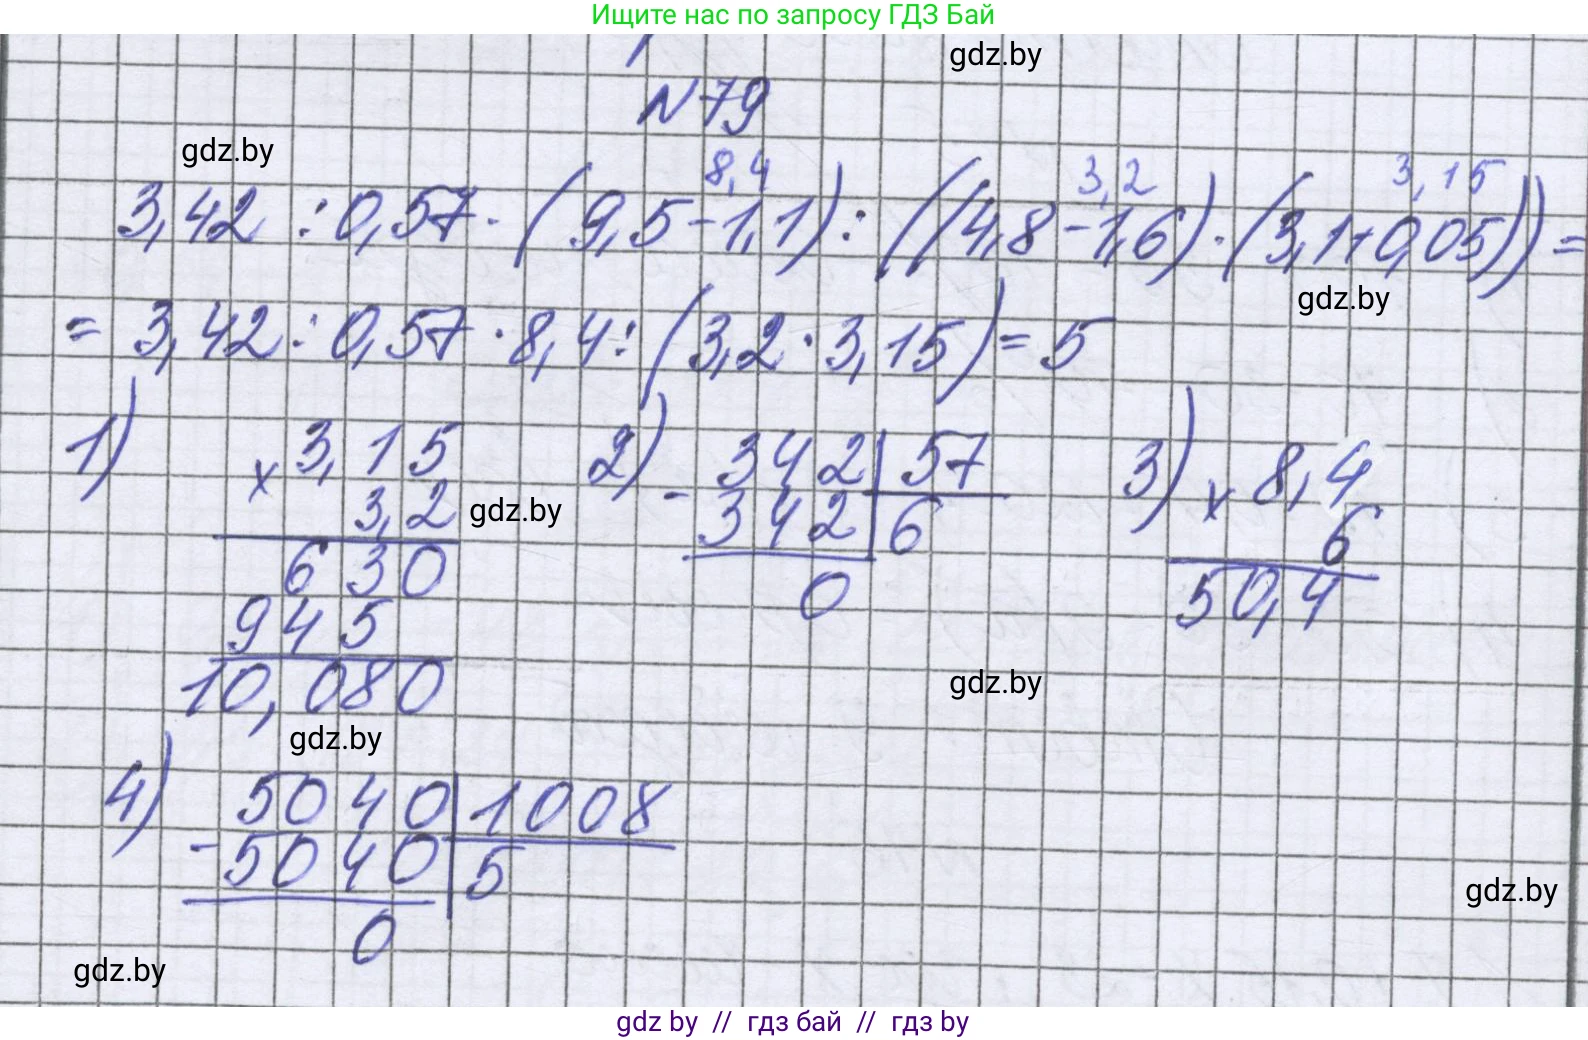 Ищите нас по запросу ГДЗ Бай
gdz.by
N79
gdz.by
8,4 3,2 3,15
3,42 : 0,57 · (9,5 - 1,1) : ((4,8 - 1,6) · (3,1 + 0,05)) =
gdz.by
= 3,42 : 0,57 · 8,4 : (3,2 · 3,15) = 5
1) x 3,15
3,2
630
945
10,080
2) - 342 | 57
342 | 6
0
3) x 8,4
6
50,4
gdz.by
gdz.by
gdz.by
4) - 5040 | 1008
5040 | 5
0
gdz.by
gdz.by
gdz by // гдз бай // гдз by